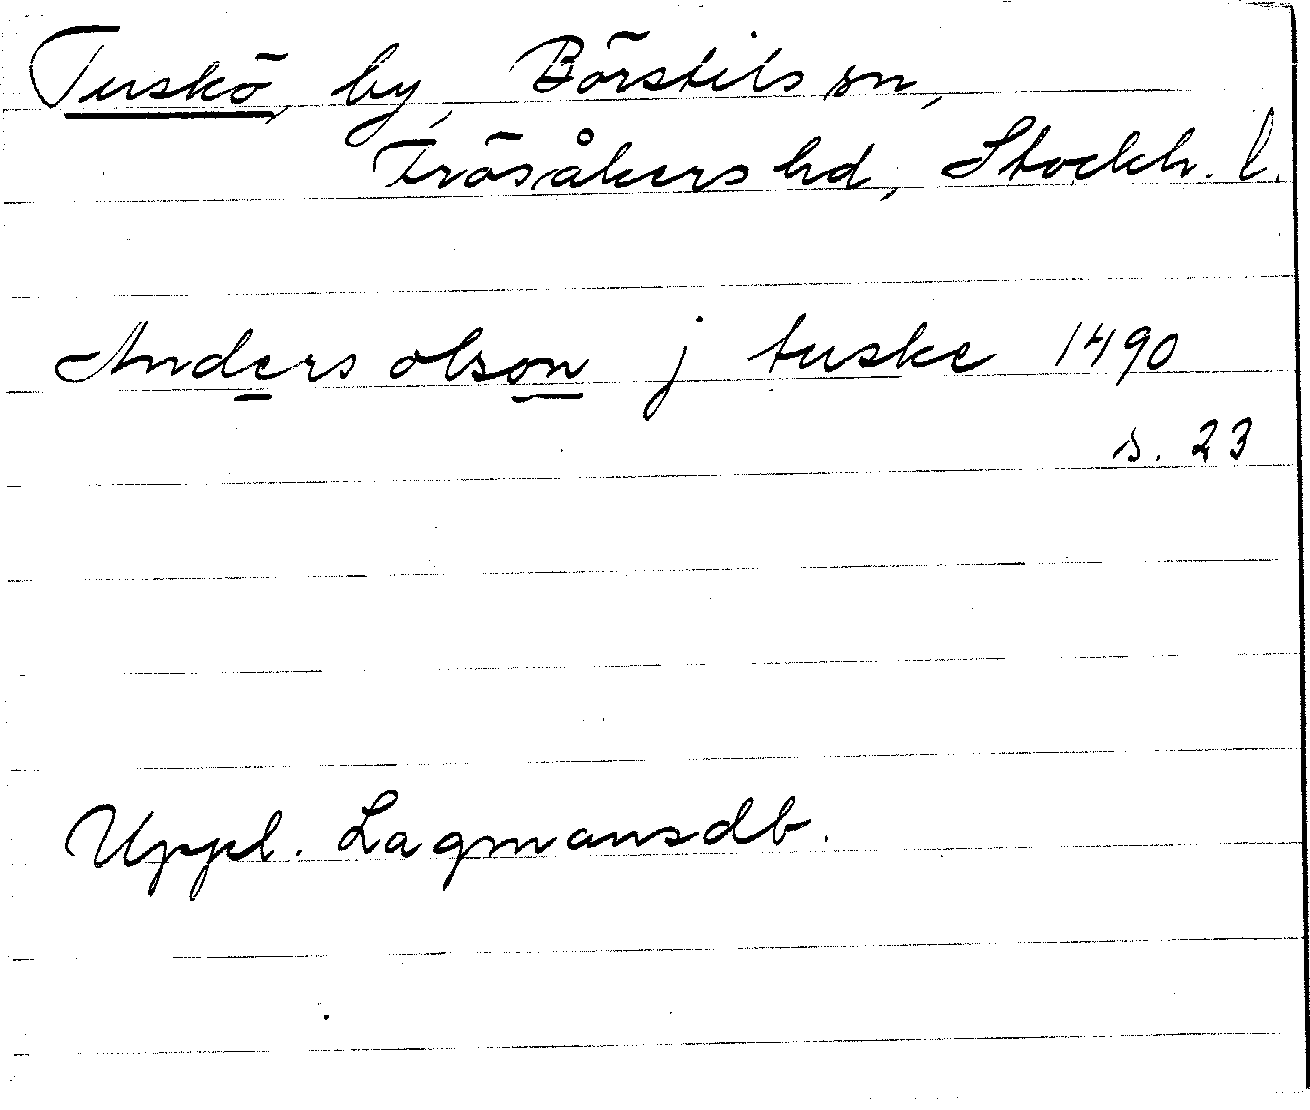 Tuskö, by, Börstils sn,
Frösåkers hd, Stockh. l.
Anders olson j tuske 1490
s. 23
Uppl. Lagmansdb.